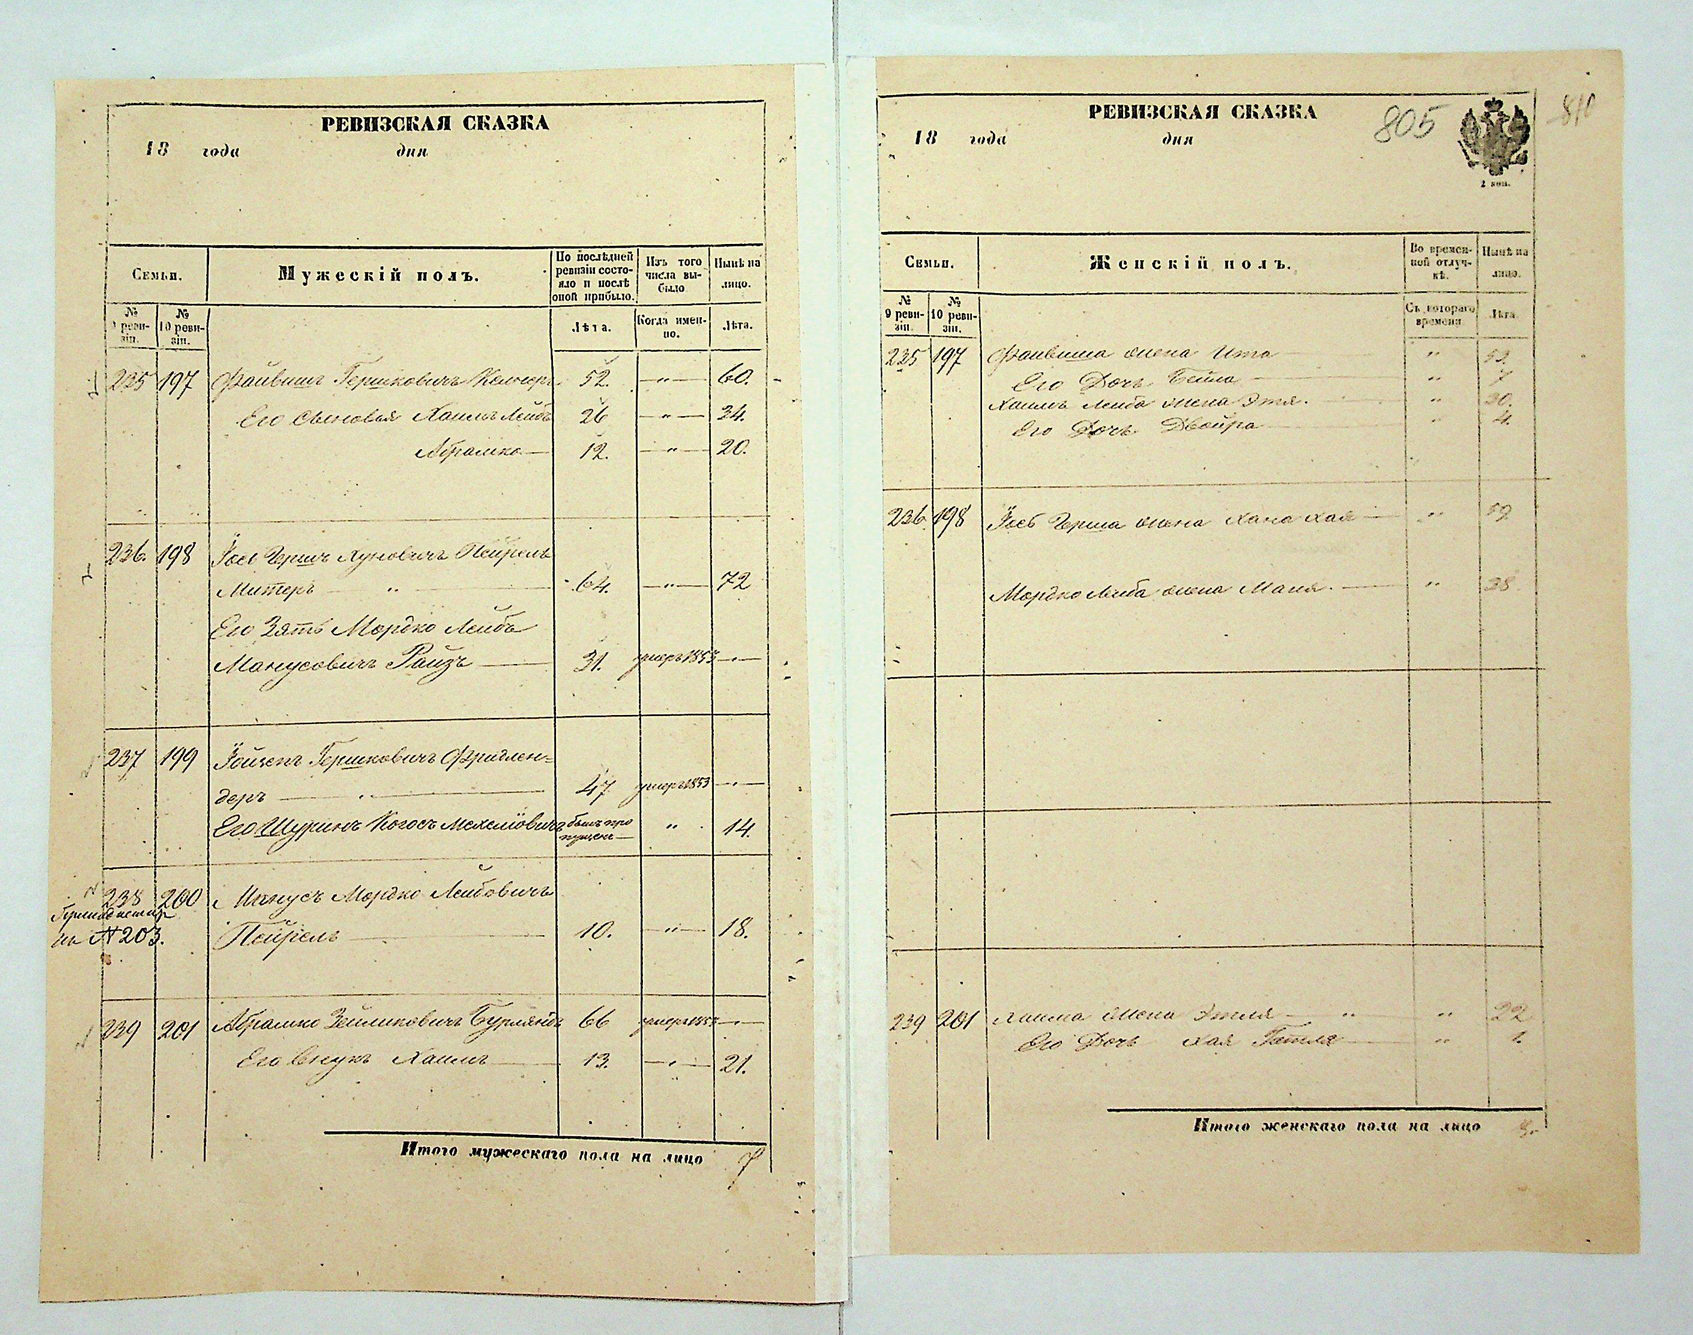 РЕВИЗСКАЯ СКАЗКА
18 года дня
Семьи.
Мужескій полъ.
По послѣдней ревизіи состояло и послѣ оной прибыло.
Изъ того числа выбыло
Нынѣ на лицо.
№ 9 ревизіи.
№ 10 ревизіи.
Лѣта.
Когда именно.
Лѣта.
235 197 Файвишъ Гершковичъ 52. —„— 60.
Его сыновья Хаимъ Лейба 26 —„— 34.
Абрамко — 12. —„— 20.
236. 198 Іосъ Гершъ Пейрель
Митеръ — „ — 64. —„— 72
Его Зять Мордко Лейба
Манусовичъ Райзъ — 31. умеръ 1853 —„—
237 199 Гершковичъ Фридлен=
деръ — „ — 47 умеръ 1853 —„—
Его Шуринъ былъ про пущенъ — „ 14.
238 200 Манусъ Мордко Лейбовичъ
на № 203.
Пейрель — 10. —„— 18.
239 201 Абрамко Зейликовичъ 66 умеръ 1853 —„—
Его Внукъ Хаимъ — 13. —„— 21.
Итого мужескаго пола на лицо 7
РЕВИЗСКАЯ СКАЗКА 805 810
18 года дня
2 коп.
Семьи.
Женскій полъ.
Во временной отлучкѣ.
Нынѣ на лицо.
№ 9 ревизіи.
№ 10 ревизіи.
Съ котораго времени.
Лѣта.
235 197 Файвиша жена Ита „ 52.
Его Дочь Бейла — „ 7
Хаимъ Лейба жена Этя. „ 30.
Его Дочь Двойра „ 4.
236. 198 Іосъ Герша жена Хана Хая — „ 59
Мордко Лейба жена Маня. — „ 38
239 201 Хаима жена Этля — „ „ 22
Его Дочь Хая — „ 1.
Итого женскаго пола на лицо 8.